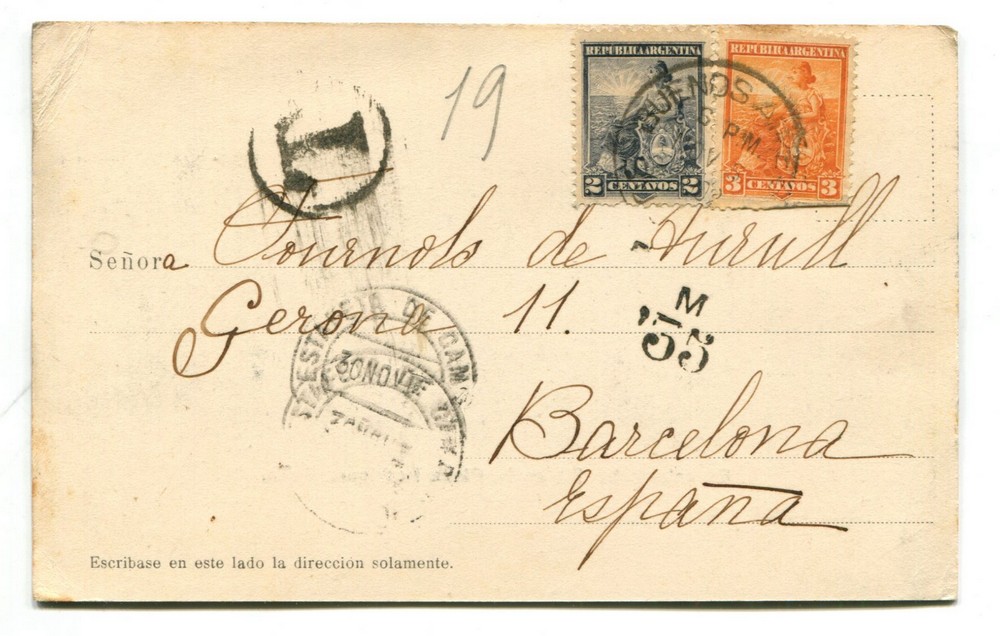 19
REPUBLICA ARGENTINA
2 CENTAVOS 2
REPUBLICA ARGENTINA
3 CENTAVOS 3
BUENOS AIRES
PM
T
Señora Tournols de Turull
Gerona 11.
M
55
ESTAFETA DE CAMB
30 NOVIE
Barcelona
España
Escribase en este lado la dirección solamente.